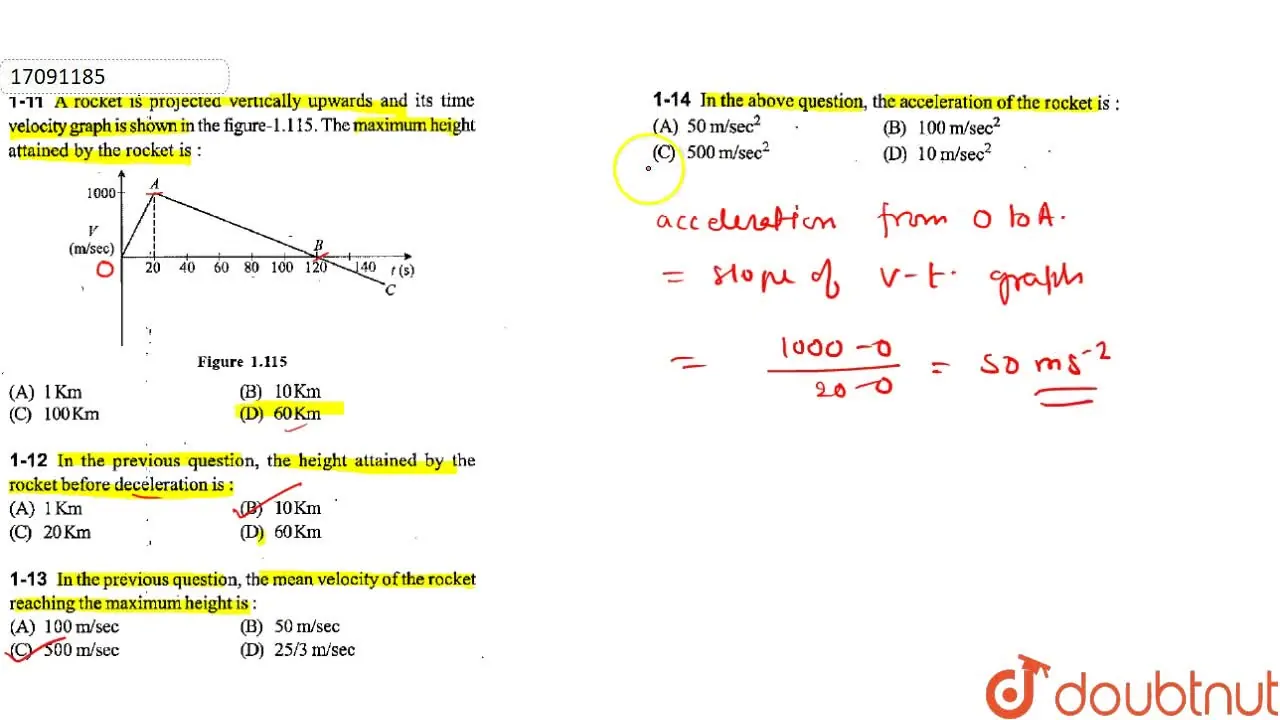 17091185
1-11 A rocket is projected vertically upwards and its time
velocity graph is shown in the figure-1.115. The maximum height
attained by the rocket is :
A
1000
V
(m/sec)
B
O
20 40 60 80 100 120 140 t (s)
C
Figure 1.115
(A) 1 Km (B) 10 Km
(C) 100 Km (D) 60 Km
1-12 In the previous question, the height attained by the
rocket before deceleration is :
(A) 1 Km (B) 10 Km
(C) 20 Km (D) 60 Km
1-13 In the previous question, the mean velocity of the rocket
reaching the maximum height is :
(A) 100 m/sec (B) 50 m/sec
(C) 500 m/sec (D) 25/3 m/sec
1-14 In the above question, the acceleration of the rocket is :
(A) 50 m/sec² (B) 100 m/sec²
(C) 500 m/sec² (D) 10 m/sec²
acceleration from O to A.
= slope of v-t. graph
= 1000 - 0 / 20 - 0 = 50 ms⁻²
doubtnut